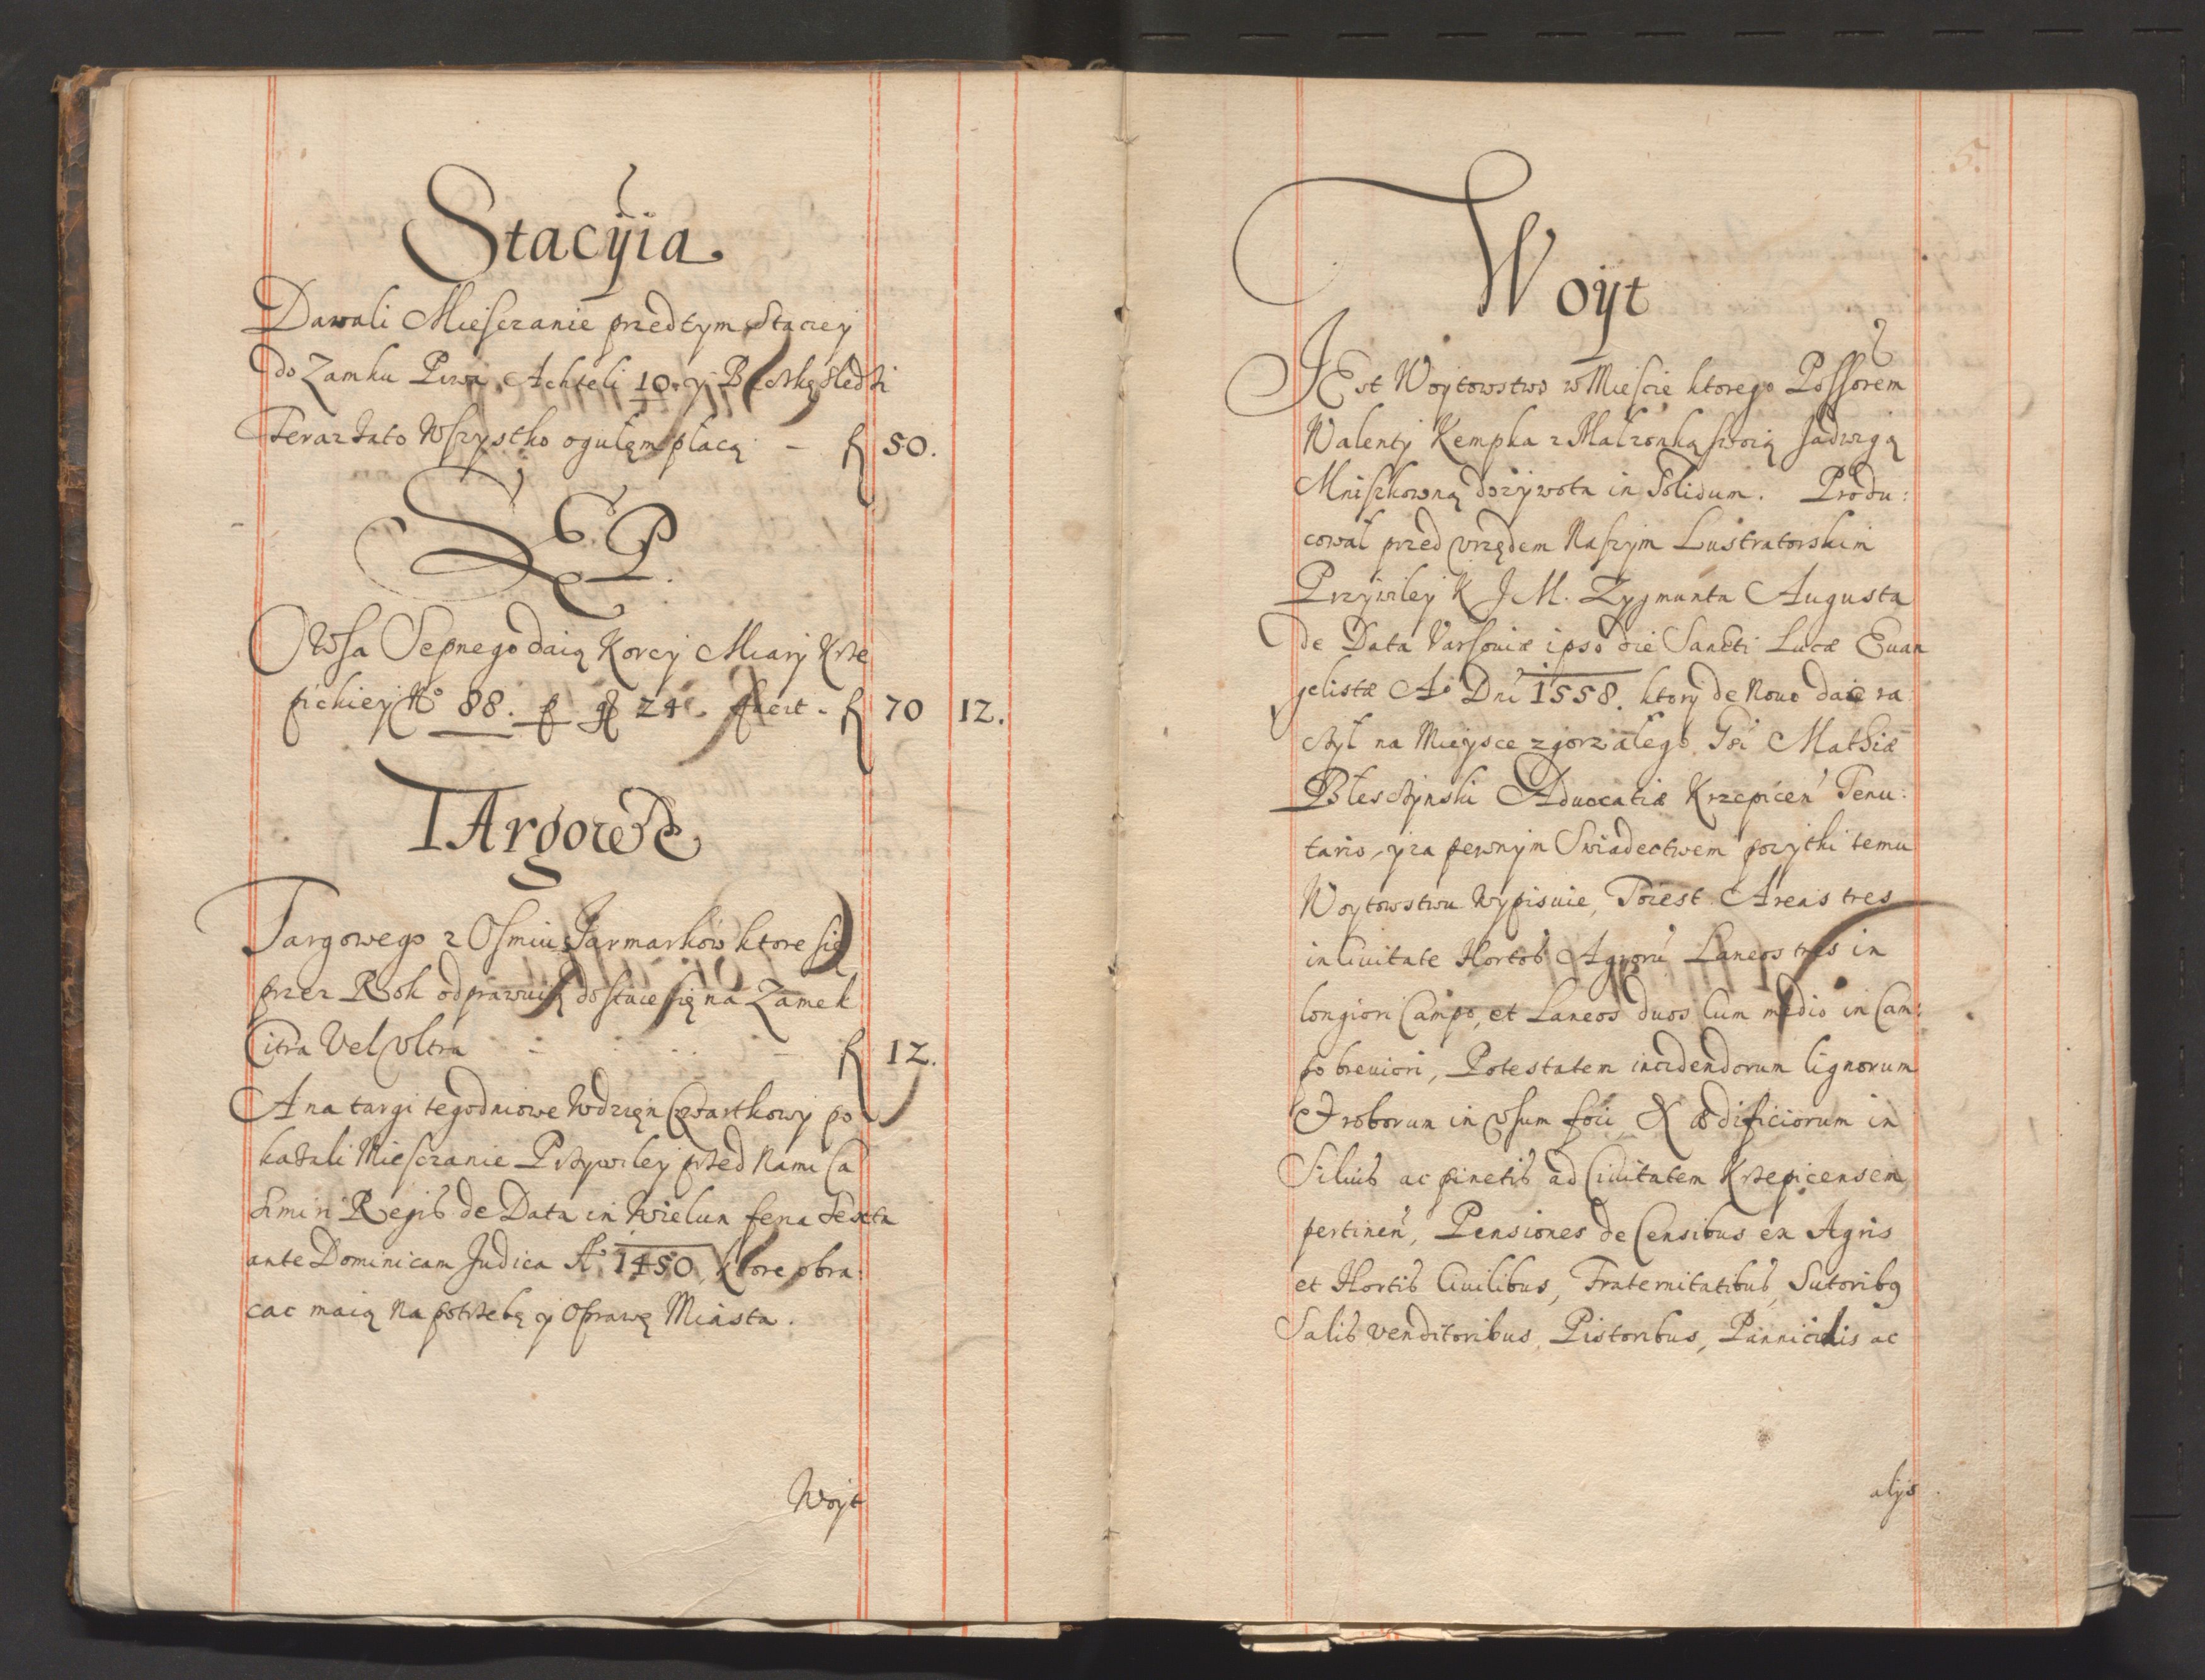 Stacÿia
Dawali Miesczanie przedtym Stacyey
do Zamku Piwa Achteli 10. y Beczkę śledzi
Teraz zato Wszystko ogułem płacą — fl 50.
SEP.
Owsa Sepnego daią Korcy Miary Krze
pickiey No 88. p gr 24. facit - fl 70 12.
TArgowe
Targowego z Osmiu Jarmarkow ktore się
przez Rok odprawuią dostaie się na Zamek
Citra Vel Vltra — fl 12.
A na targi tegodniowe Wdzięn Czwartkowy po
kazali Miesczanie Przywiley przed Nami Ca
simiri Regis de Data in Wielun feria Sexta
ante Dominicam Judica Ao 1450. ktore obra:
cac maią Na potrzebę y Oprawę Miasta.
Woyt
Woÿt
JEst Woytowstwo w Mieście ktorego Possorem
Walenty Kempka z Małzonką swoią Jadwigą
Mniszkowną dozywota in Solidum. Produ:
cował przed Vrzędem Naszym Lustratorskim
Przywiley K J M. Zygmunta Augusta
de Data Varsoviæ ipso die Sancti Lucæ Euan
gelistæ Ao Dni 1558. ktory de Nouo daie ra
czył na Mieysce zgorzałego Gsi Mathiæ
Błeszczynski Aduocatiæ Krzepicen Tenu:
tario, y za pewnym Swiadectwem pozytki temu
Woytowstwu Wypisuie, To iest Areas tres
in Ciuitate Hortos Agrorũ Laneos tres in
longiori Campo, et Laneos duos Cum medio in Cam:
po breuiori, Potestatem incidendorum lignorum
Et roborum in Vsum foci & ædificiorum in
Siluis ac pinetis ad Ciuitatem Krzepicensem
pertinen, Pensiones de Censibus ex Agris
et Hortis Ciuilibus, Fraternitatibus, Sutoribq
Salis venditoribus, Pistoribus, Panniculis ac
alys